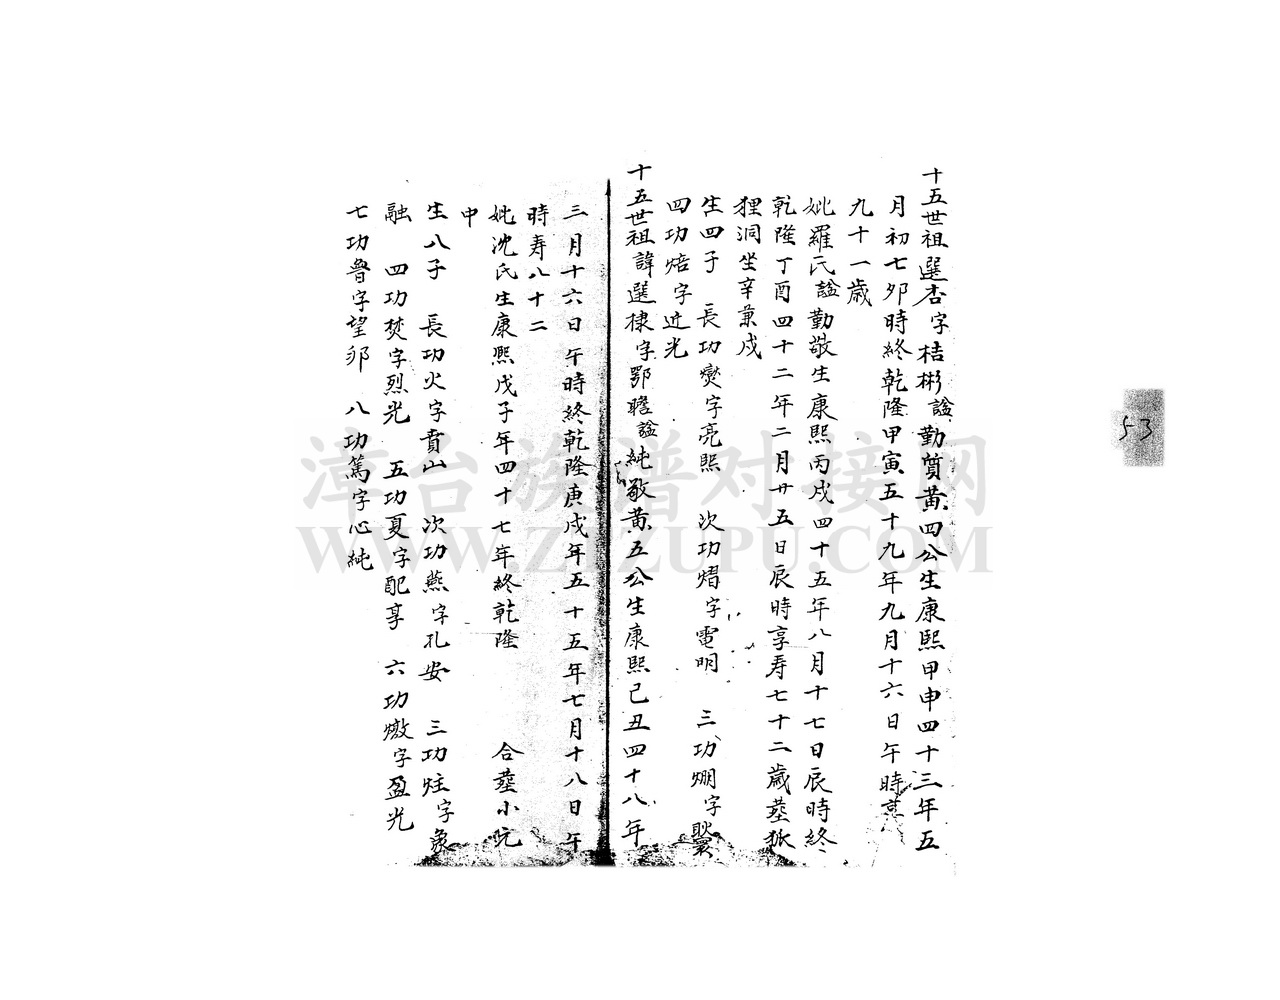 十五世祖選杏字桔彬謚勤質黃四公生康熙甲申四十三年五
月初七夘時終乾隆甲寅五十九年九月十六日午時享
九十一歲
妣羅氏謚勤敬生康熙丙戌四十五年八月十七日辰時終
乾隆丁酉四十二年二月廿五日辰時享寿七十二歲塟狐
狸洞坐辛兼戍
生四子 長功爕字亮熙 次功熠字電明 三功焩字
四功焙字近光
十五世祖諱選棣字鄂瞻謚純敬黃五公生康熙己丑四十八年
三月十六日午時終乾隆庚戌年五十五年七月十八日午
時寿八十二
妣沈氏生康熙戊子年四十七年終乾隆 合塟小阮
中
生八子 長功火字賁山 次功燕字孔安 三功炷字
融 四功焚字烈光 五功夏字配享 六功燉字盈光
七功魯字望邜 八功篤字心純
53
漳台族譜对接网
WWW.ZTZUPU.COM